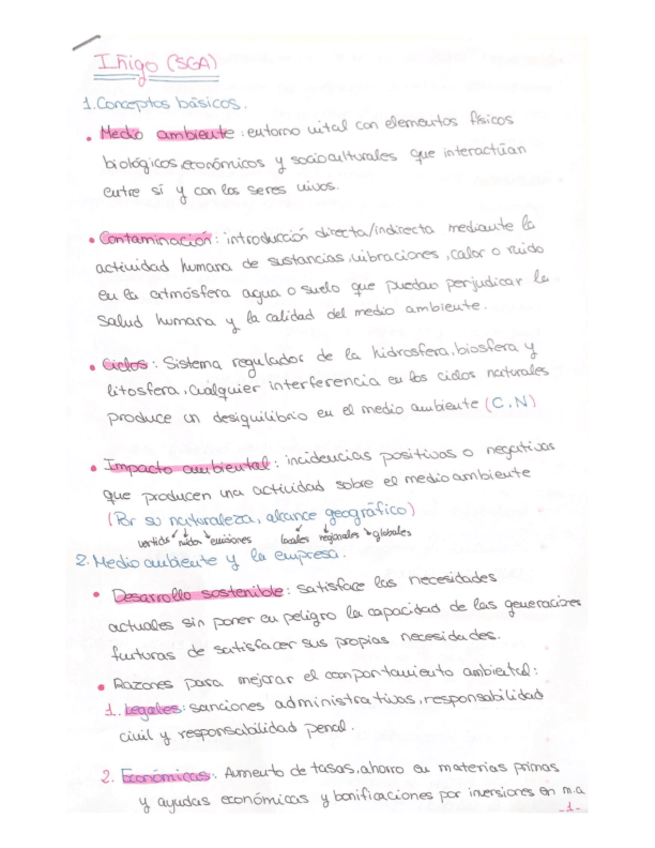 Iñigo (SGA)
1. Conceptos básicos.
• Medio ambiente: entorno vital con elementos físicos
biológicos, económicos y socioculturales que interactúan
entre sí y con los seres vivos.
• Contaminación: introducción directa/indirecta mediante la
actividad humana de sustancias, vibraciones, calor o ruido
en la atmósfera agua o suelo que puedan perjudicar la
salud humana y la calidad del medio ambiente.
• Ciclos: Sistema regulador de la hidrosfera, biosfera y
litosfera, cualquier interferencia en los ciclos naturales
produce un desiquilibrio en el medio ambiente (C, N)
• Impacto ambiental: incidencias positivas o negativas
que producen una actividad sobre el medio ambiente
(Por su naturaleza, alcance geográfico)
vertidos ruidos emisiones locales regionales globales
2. Medio ambiente y la empresa.
• Desarrollo sostenible: satisface las necesidades
actuales sin poner en peligro la capacidad de las generaciones
furturas de satisfacer sus propias necesidades.
• Razones para mejorar el comportamiento ambiental:
1. Legales: sanciones administrativas, responsabilidad
civil y responsabilidad penal.
2. Económicas: Aumento de tasas, ahorro en materias primas
y ayudas económicas y bonificaciones por inversiones en m.a
-1-